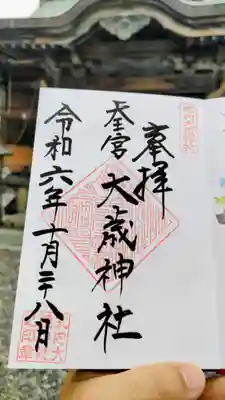 奉拝
大歳神社
令和六年十月二十八日